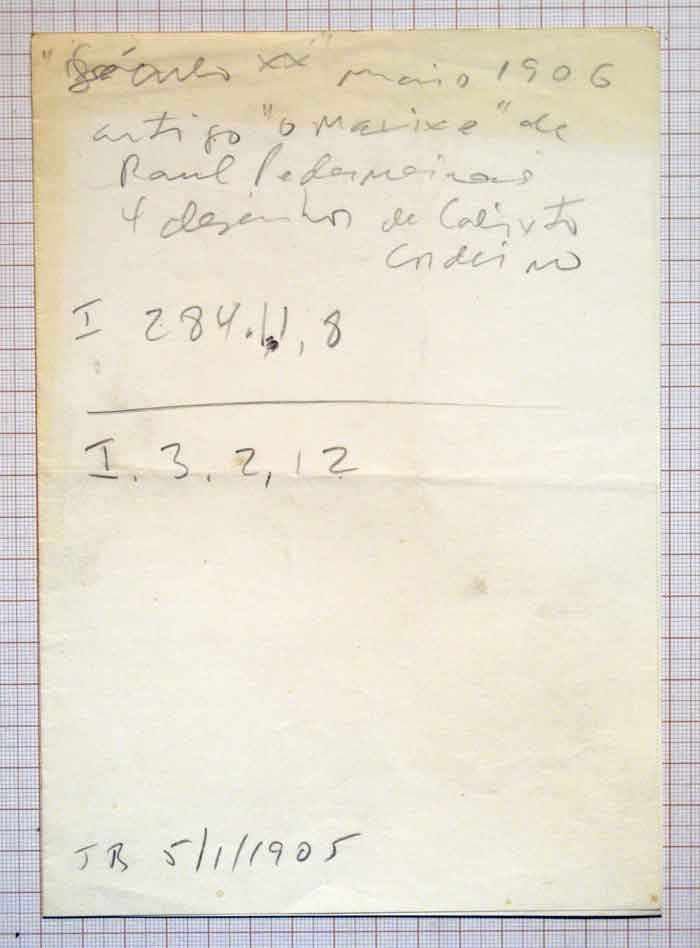 "Século XX" maio 1906
artigo "o Maxixe" de
Raul Pederneiras
4 desenhos de Calixto
Cordeiro
I 284.11,8
I.3.2,12
JB 5/1/1905